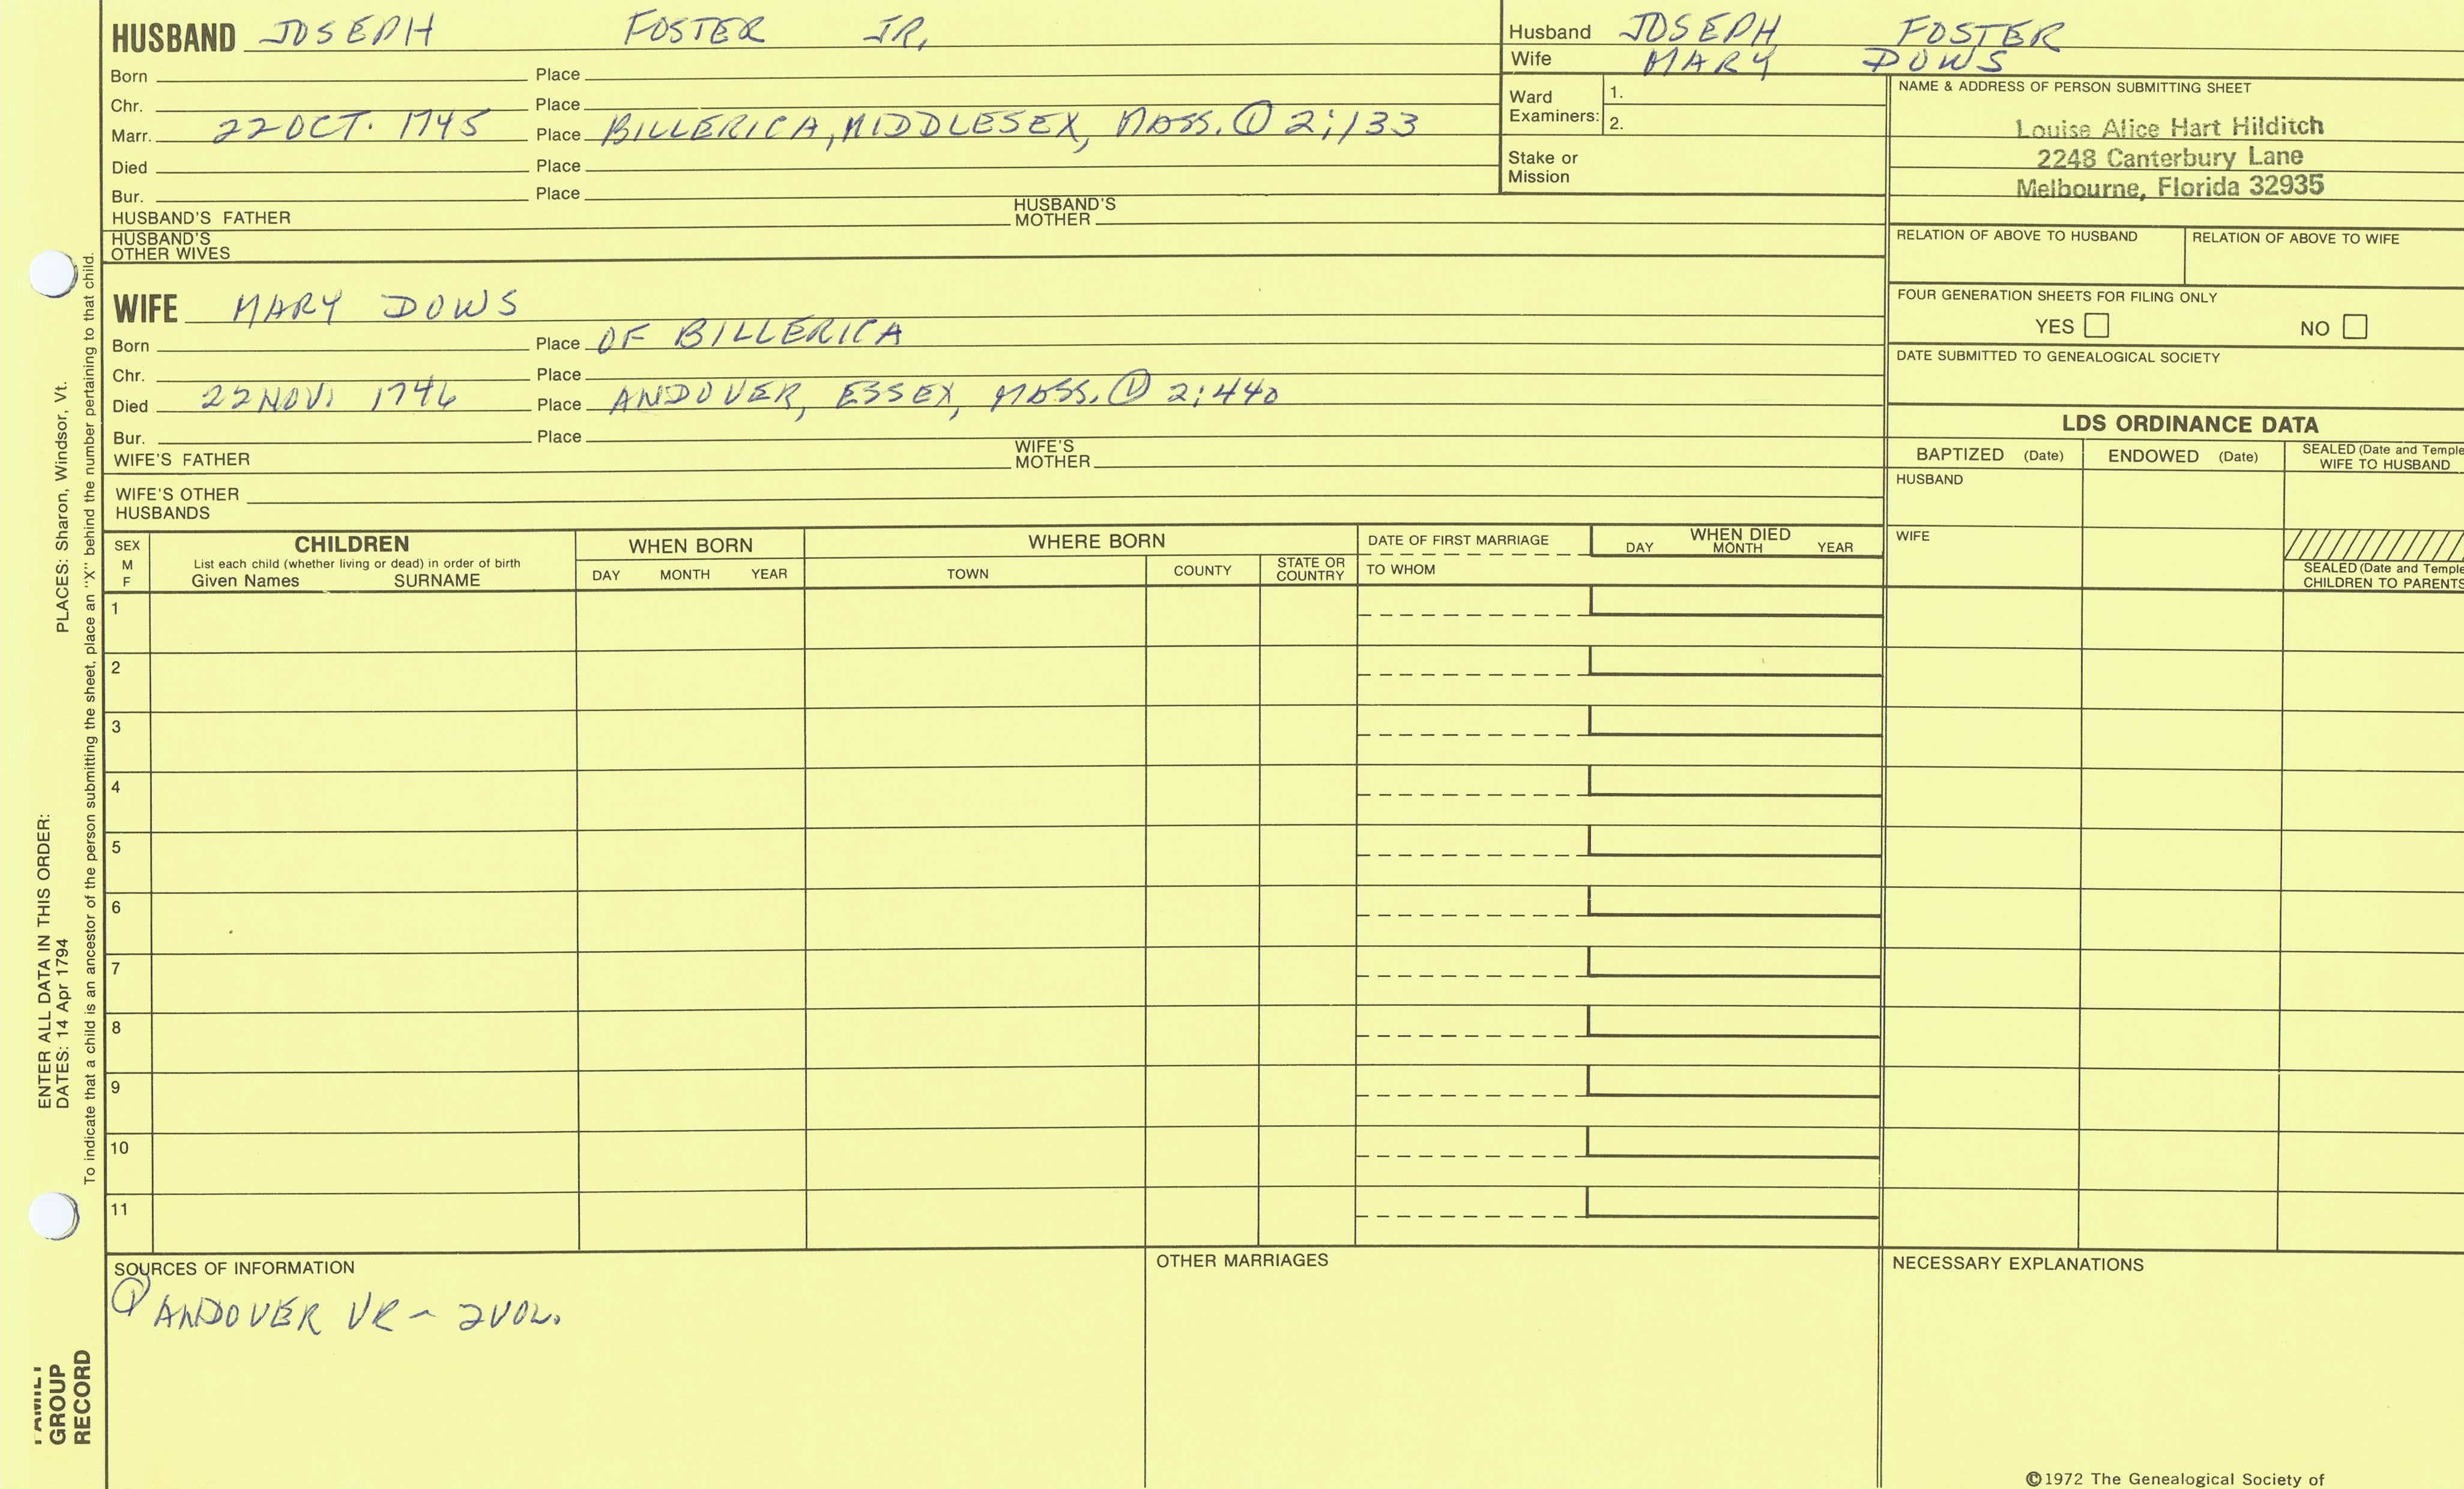 HUSBAND JOSEPH FOSTER JR.
Born Place
Chr. Place
Marr. 22 OCT. 1745 Place BILLERICA, MIDDLESEX, MASS. ① 2:133
Died Place
Bur. Place
HUSBAND'S FATHER HUSBAND'S MOTHER
HUSBAND'S OTHER WIVES
WIFE MARY DOWS
Born Place OF BILLERICA
Chr. Place
Died 22 NOV. 1746 Place ANDOVER, ESSEX, MASS. ① 2:440
Bur. Place
WIFE'S FATHER WIFE'S MOTHER
WIFE'S OTHER HUSBANDS
Husband JOSEPH FOSTER
Wife MARY DOWS
Ward Examiners: 1.
2.
Stake or Mission
NAME & ADDRESS OF PERSON SUBMITTING SHEET
Louise Alice Hart Hilditch
2248 Canterbury Lane
Melbourne, Florida 32935
RELATION OF ABOVE TO HUSBAND RELATION OF ABOVE TO WIFE
FOUR GENERATION SHEETS FOR FILING ONLY
YES NO
DATE SUBMITTED TO GENEALOGICAL SOCIETY
LDS ORDINANCE DATA
BAPTIZED (Date) ENDOWED (Date) SEALED (Date and Temple
WIFE TO HUSBAND
HUSBAND
WIFE
SEALED (Date and Temple
CHILDREN TO PARENTS
SEX
M
F
CHILDREN
List each child (whether living or dead) in order of birth
Given Names SURNAME
WHEN BORN
DAY MONTH YEAR
WHERE BORN
TOWN COUNTY STATE OR COUNTRY
DATE OF FIRST MARRIAGE
TO WHOM
WHEN DIED
DAY MONTH YEAR
1
2
3
4
5
6
7
8
9
10
11
SOURCES OF INFORMATION
① ANDOVER VR – 2 VOL.
OTHER MARRIAGES
NECESSARY EXPLANATIONS
©1972 The Genealogical Society of
ENTER ALL DATA IN THIS ORDER:
DATES: 14 Apr 1794 PLACES: Sharon, Windsor, Vt.
To indicate that a child is an ancestor of the person submitting the sheet, place an "X" behind the number pertaining to that child.
FAMILY
GROUP
RECORD